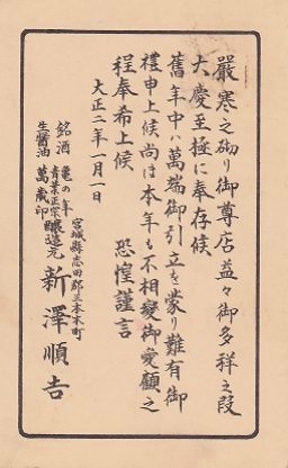 嚴寒之砌り御尊店益々御多祥之段
大慶至極に奉存候
舊年中ハ萬端御引立を蒙り難有御
禮申上候尚ほ本年も不相變御愛顧之
程奉希上候
恐惶謹言
大正二年一月一日
宮城縣志田郡三本木町
銘酒
龜の年
青葉正宗
生醬油
萬歳印
醸造元
新澤順吉